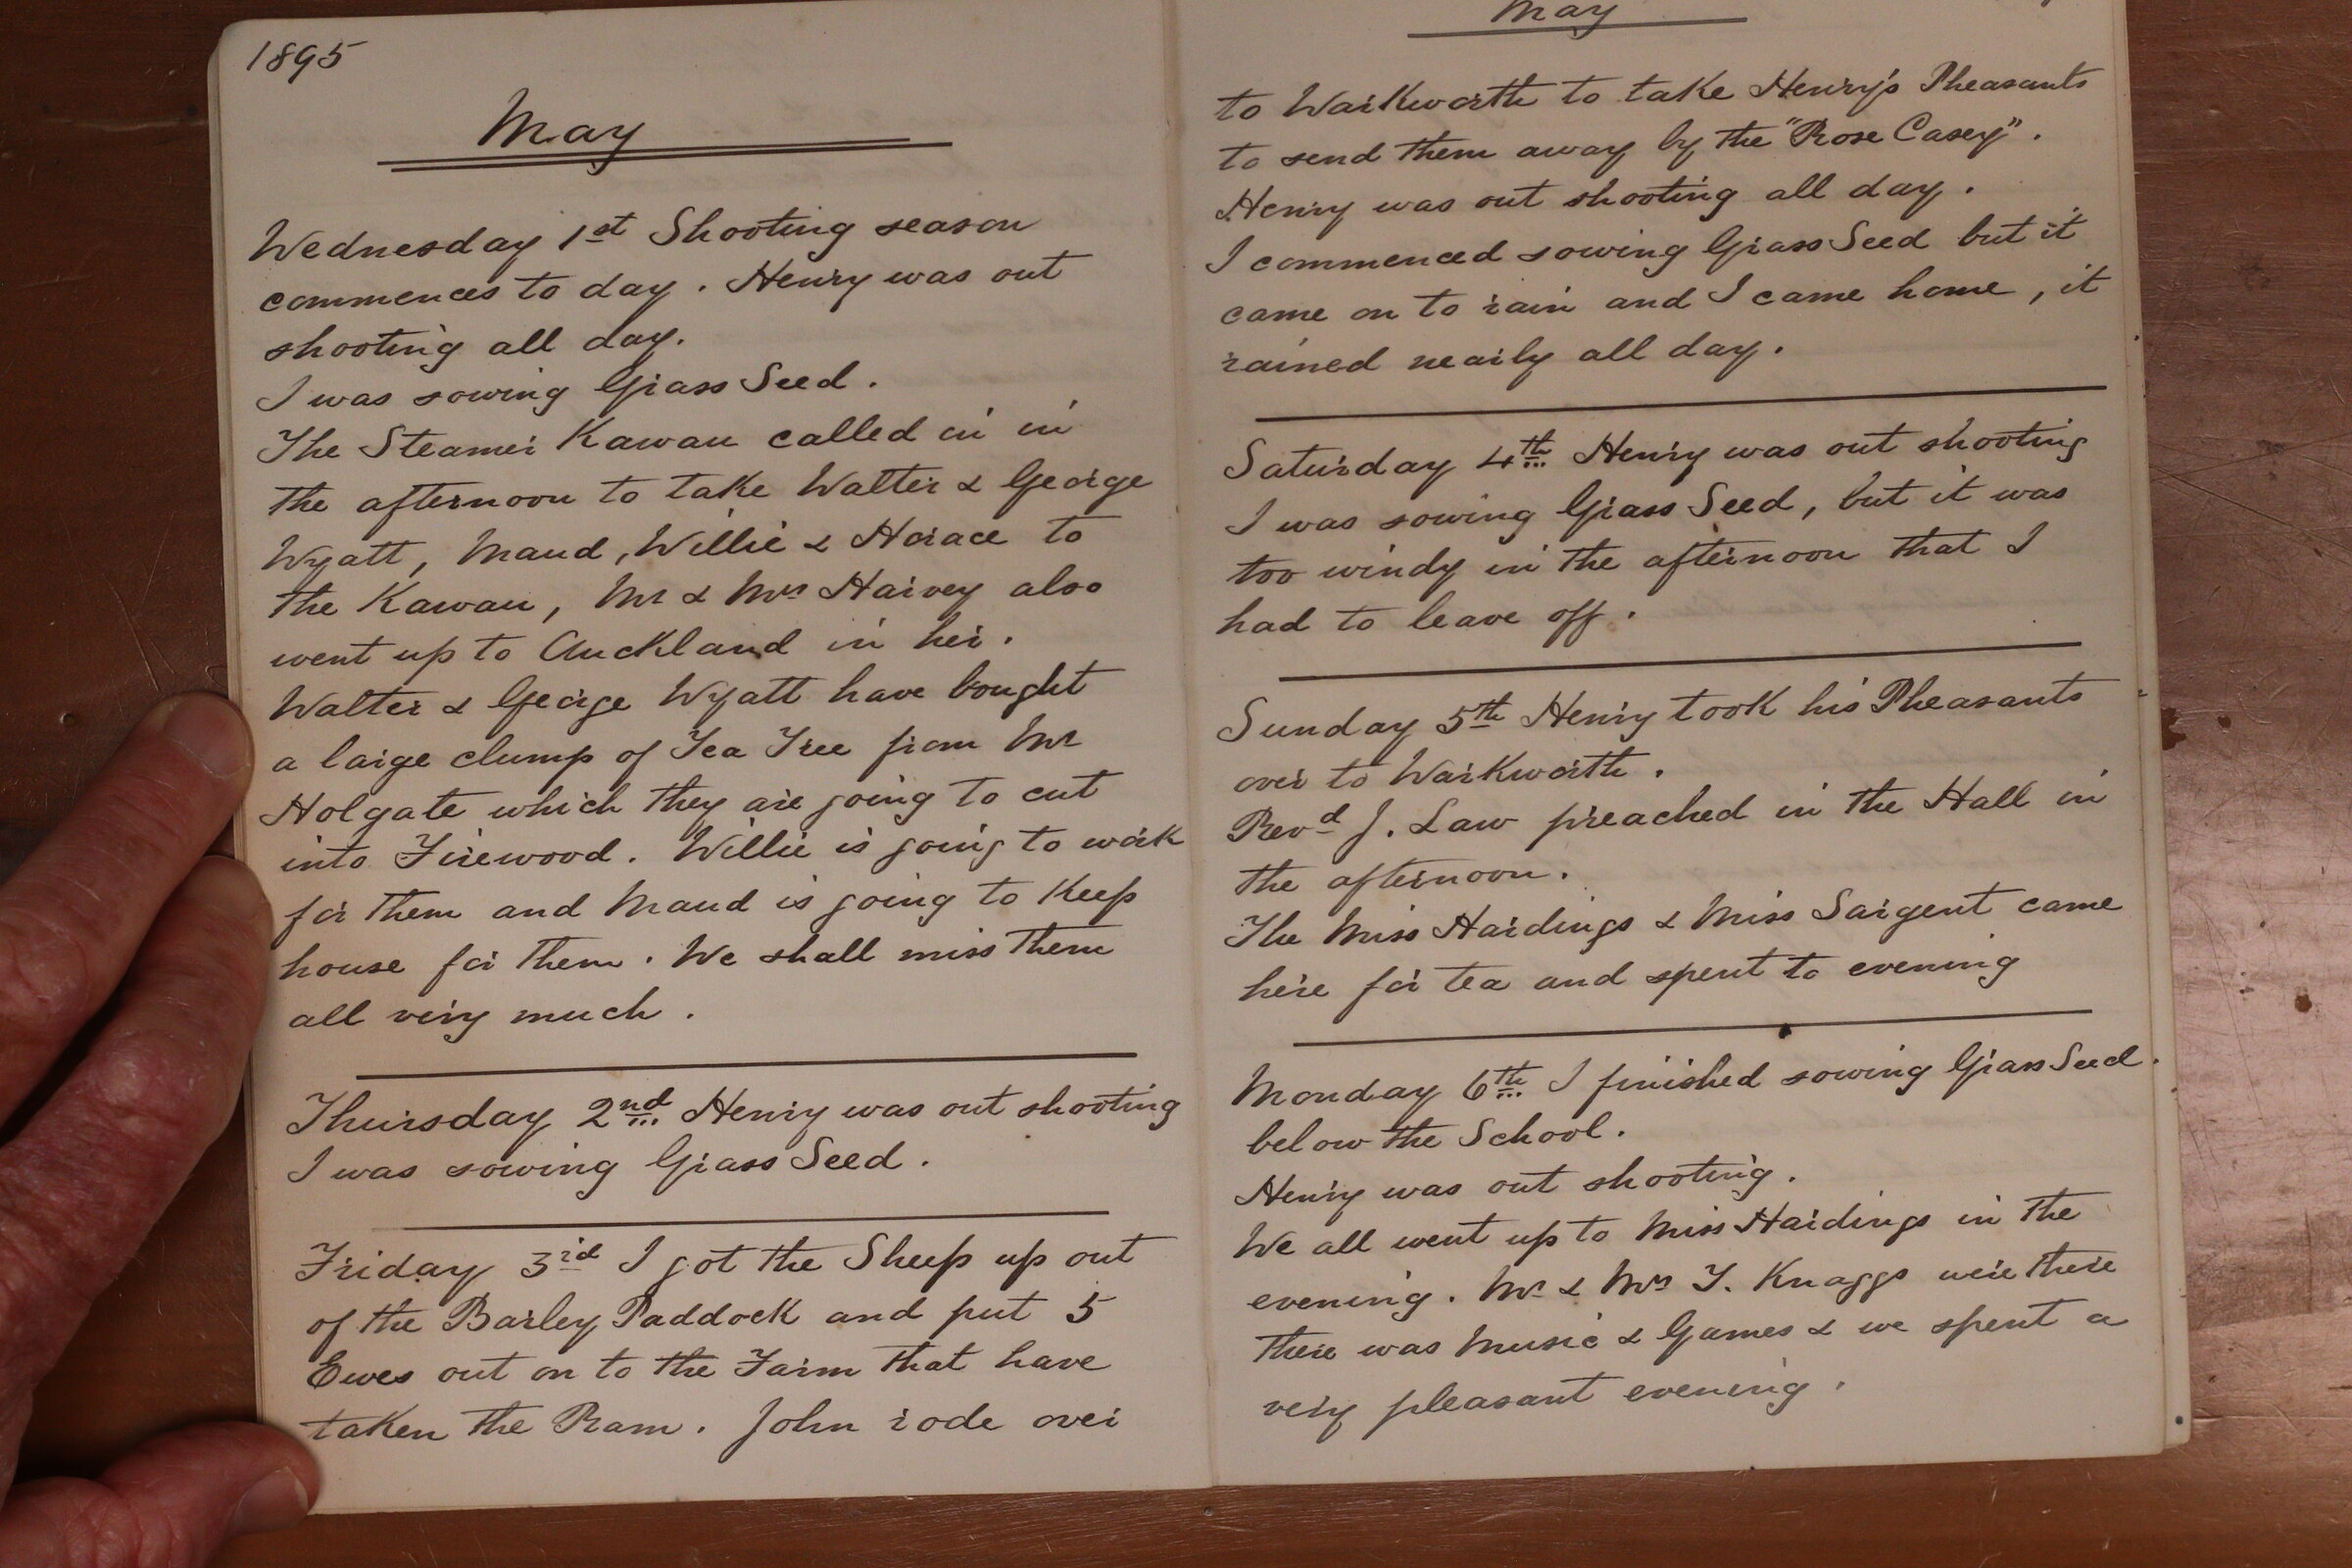 1895
May
Wednesday 1st Shooting season
commences to day. Henry was out
shooting all day.
I was sowing Grass Seed.
The Steamer Kawau called in in
the afternoon to take Walter & George
Wyatt, Maud, Willie & Horace to
the Kawau, Mr & Mrs Harvey also
went up to Auckland in her.
Walter & George Wyatt have bought
a large clump of Tea Tree from Mr
Holgate which they are going to cut
into Firewood. Willie is going to work
for them and Maud is going to Keep
house for them. We shall miss them
all very much.
Thursday 2nd Henry was out shooting
I was sowing Grass Seed.
Friday 3rd I got the Sheep up out
of the Barley Paddock and put 5
Ewes out on to the Farm that have
taken the Ram. John rode over
May
to Warkworth to take Henry's Pheasants
to send them away by the "Rose Casey".
Henry was out shooting all day.
I commenced sowing Grass Seed but it
came on to rain and I came home, it
rained nearly all day.
Saturday 4th Henry was out shooting
I was sowing Grass Seed, but it was
too windy in the afternoon that I
had to leave off.
Sunday 5th Henry took his Pheasants
over to Warkworth.
Revd J. Law preached in the Hall in
the afternoon.
The Miss Hardings & Miss Sargent came
here for tea and spent to evening
Monday 6th I finished sowing Grass Seed.
below the School.
Henry was out shooting.
We all went up to Miss Hardings in the
evening. Mr & Mrs T. Knaggs were there
there was Music & Games & we spent a
very pleasant evening.